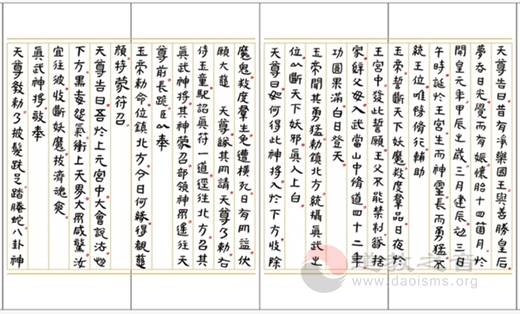 天尊告曰昔有淨樂國王與善勝皇后
夢吞日光覺而有娠懷胎十四箇月於
開皇元年甲辰之歲三月建辰初三日
午時誕於王宮生而神靈長而勇猛不
統王位唯務修行輔助
玉帝誓斷天下妖魔救度羣品日夜於
王宮中發此誓願王父不能禁制遂捨
家辭父母入武當山中脩道四十二年
功圓果滿白日登天
玉帝聞其勇猛勅鎮北方統攝眞武之
位以斷天下妖邪眞人上白
天尊曰如何得此神將入於下方收除
魔鬼救度羣生免遭橫死日有所益伏
願大慈 天尊詠其所請 天尊乃勅右
侍玉童馳詔眞符一道逕往北方召其
眞武神將其神蒙召部領神眾遙往天
尊前長跪臣以奉
玉帝勅命位鎮北方今日何緣得覩慈
顏特蒙符召
天尊告曰吾於上元宮中大會說法忽
下方黑毒怨氣衝上天界大眾咸驚汝
宜往彼收斷妖魔拔濟魂爽
眞武神將敬奉
天尊教勅乃披髮跣足踏騰蛇八卦神
道教之音
www.daoisms.org